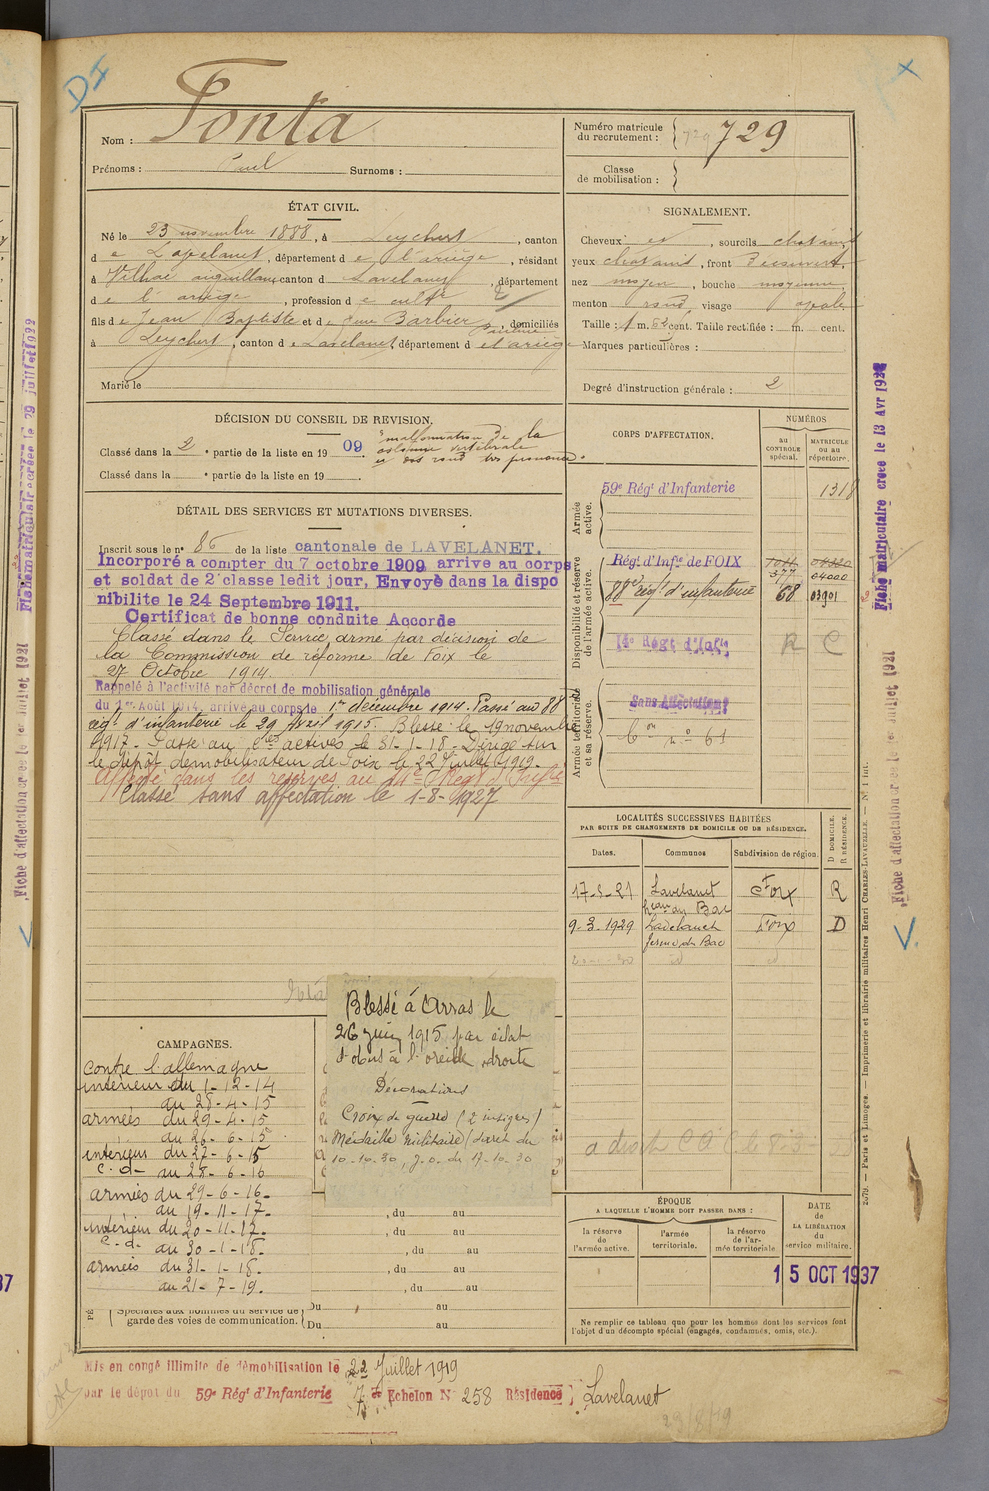 Nom : Fonta
Prénoms : Paul Surnoms :
Numéro matricule du recrutement : 729
Classe de mobilisation :
ÉTAT CIVIL.
Né le 23 novembre 1888, à Leychert, canton
de Lavelanet, département de l'ariège, résidant
à Vilhac aiguillanes canton d Lavelanet, département
de l'ariège, profession de cultr
fils de Jean Baptiste et de Barbier Pauline, domiciliés
à Leychert, canton de Lavelanet, département d el'ariège
Marié le
SIGNALEMENT.
Cheveux et, sourcils chatains
yeux chatains, front Découvert,
nez moyen, bouche moyenne,
menton rond, visage ovale
Taille : 1 m. 62 cent. Taille rectifiée : m. cent.
Marques particulières :
Degré d'instruction générale : 2
DÉCISION DU CONSEIL DE REVISION.
Classé dans la 2e partie de la liste en 1909
"malformation de la
colonne vertébrale
dos rond très prononcé".
Classé dans la e partie de la liste en 19
DÉTAIL DES SERVICES ET MUTATIONS DIVERSES.
Inscrit sous le n° 86 de la liste cantonale de LAVELANET.
Incorporé a compter du 7 octobre 1909, arrive au corps
et soldat de 2e classe ledit jour, Envoyé dans la dispo
nibilite le 24 Septembre 1911.
Certificat de bonne conduite Accorde
Classé dans le Service armé par décision de
la Commission de réforme de Foix le
27 Octobre 1914.
Rappelé à l'activité par décret de mobilisation générale
du 1er Août 1914, arrivé au corps le 1er décembre 1914. Passé au 88e
régt. d'infanterie le 29 Avril 1915. Blessé le 19 novembre
1917. Passé au actives le 31-1-18. Dirigé sur
le dépôt démobilisateur de Foix le 22 Juillet 1919.
Affecté dans les réserves au 14e Régt d'Inftie
Classé sans affectation le 1-8-1927
CORPS D'AFFECTATION.
NUMÉROS
au CONTRÔLE spécial.
MATRICULE ou au répertoire.
Armée active.
59e Régt d'Infanterie 1318
Disponibilité et réserve de l'armée active.
Régt. d'Infie de FOIX
377 04000
88e régt d'infanterie 68 03901
14e Régt d'Infie R C
Armée territoriale et sa réserve.
Sans Affectation
LOCALITÉS SUCCESSIVES HABITÉES
PAR SUITE DE CHANGEMENTS DE DOMICILE OU DE RÉSIDENCE.
Dates. Communes Subdivision de région. D DOMICILE. R RÉSIDENCE.
Lavelanet Foix R
9-3-1929 Lavelanet Foix D
CAMPAGNES.
contre l'allemagne
intérieur du 1-12-14
au 28-4-15
armées du 29-4-15
au 26-6-15
intérieur du 27-6-15
c. d. au 28-6-16
armées du 29-6-16
au 19-11-17
intérieur du 20-11-17
c. d. au 30-1-18
armées du 31-1-18
au 21-7-19.
Blessé à Arras le
26 juin 1915 par éclat
d'obus à l'oreille droite
Décorations
Croix de guerre (2 insignes)
Médaille militaire (décret du
10-10-30, J.O. du 17-10-30
, du au
, du au
, du au
, du au
, du au
Du au
Spéciales aux hommes du service de
garde des voies de communication. Du au
ÉPOQUE
A LAQUELLE L'HOMME DOIT PASSER DANS :
la réserve de l'armée active.
l'armée territoriale.
la réserve de l'armée territoriale
DATE de LA LIBÉRATION du service militaire.
15 OCT 1937
Ne remplir ce tableau que pour les hommes dont les services font
l'objet d'un décompte spécial (engagés, condamnés, omis, etc.).
Mis en congé illimité de démobilisation le 22 Juillet 1919
par le dépôt du 59e Régt d'Infanterie Echelon N° 258 Résidence Lavelanet
Fiche matriculaire créée le 13 Avr
Fiche d'affectation créée le 1er Juillet 1921
Paris et Limoges. — Imprimerie et librairie militaires Henri CHARLES-LAVAUZELLE.